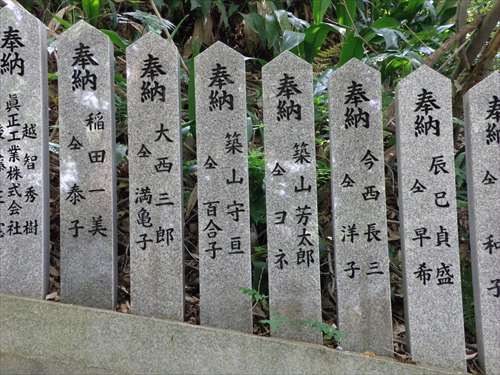 奉納
仝 和
奉納
辰巳貞盛
仝 早希
奉納
今西長三
仝 洋子
奉納
築山芳太郎
仝 ヨネ
奉納
築山守亘
仝 百合子
奉納
大西三郎
仝 満亀子
奉納
稲田一美
仝 泰子
奉納
越智秀樹
眞正工業株式会社